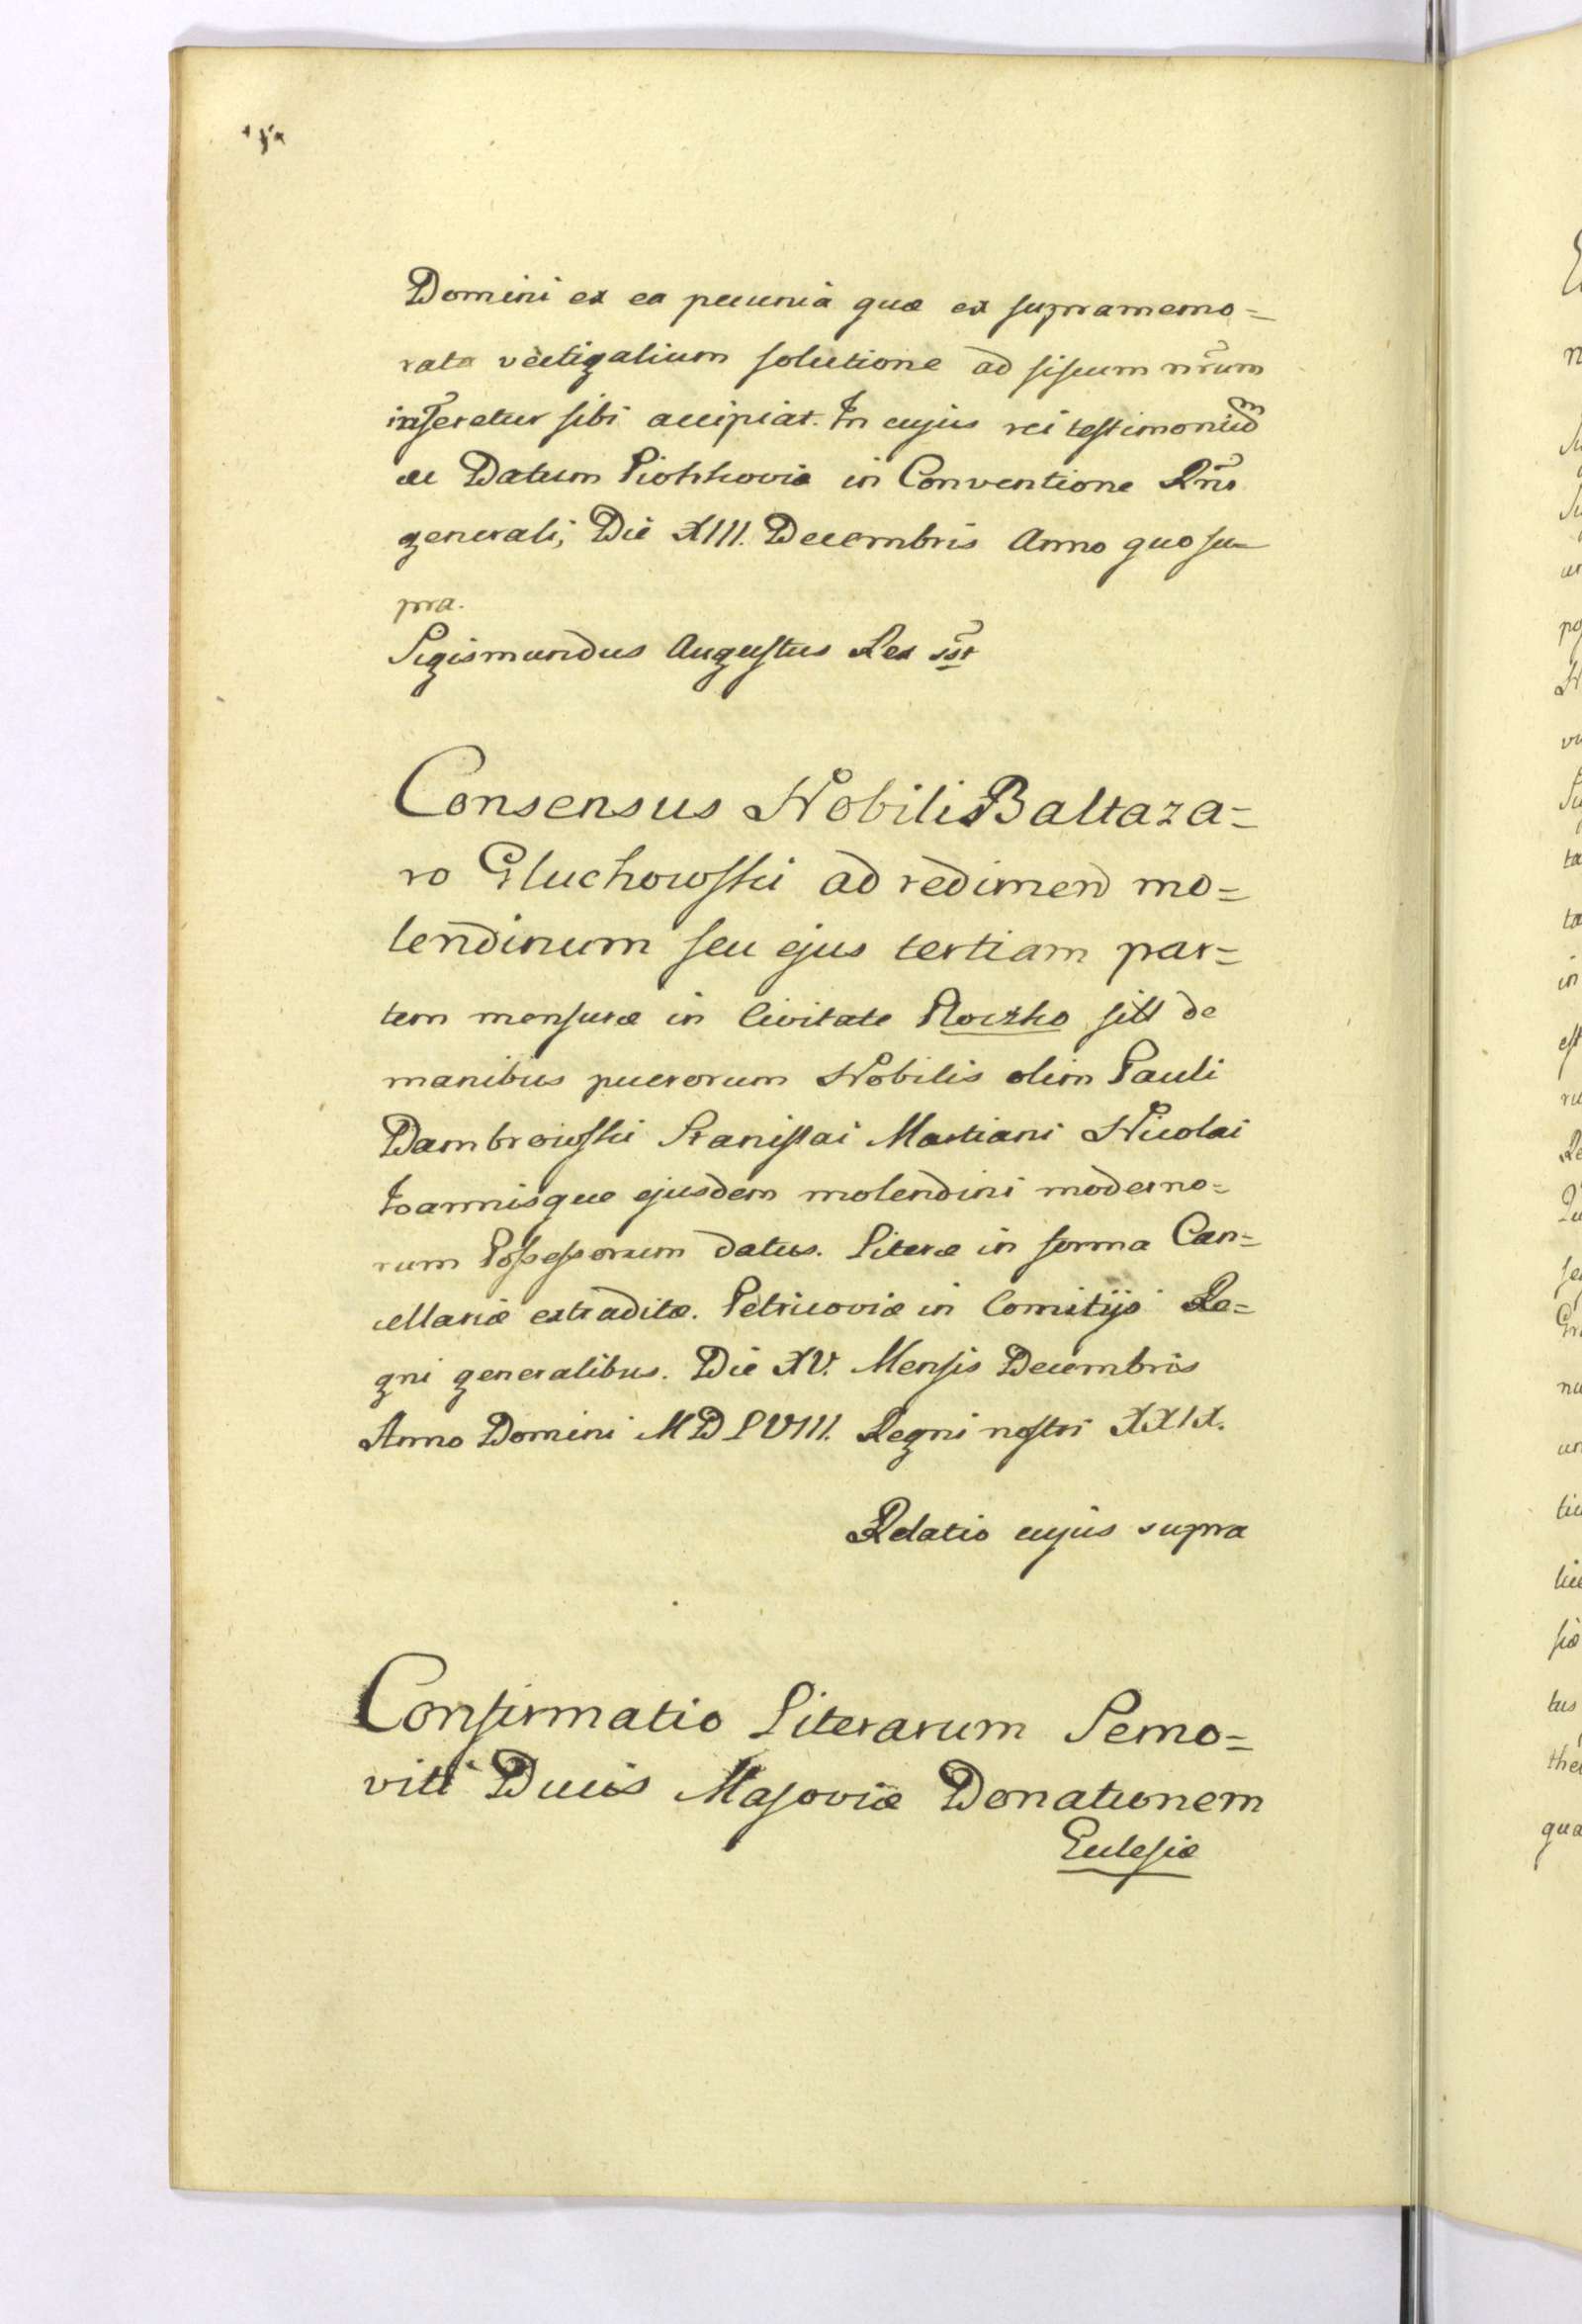 Domini ex ea pecunia quæ ex supramemo=
rata vectigalium solutione ad fiscum nr̃um
inferetur sibi accipiat. In cujus rei testimoniu͠m
etc Datum Piotrkoviæ in Conventione Rñi
generali, Die XIII. Decembris Anno quo su=
pra.
Sigismundus Augustus Rex sst
Consensus Nobili Baltaza=
ro Głuchowski ad redimend mo=
lendinum seu ejus tertiam par=
tem mensuræ in Civitate Płoczko sitt de
manibus puerorum Nobilis olim Pauli
Dambrowski Stanislai Martiani Nicolai
Joannisque ejusdem molendini moderno=
rum Possessorum datus. Literæ in forma Can=
cellariæ extraditæ. Petricoviæ in Comitijs Re=
gni generalibus. Die XV. Mensis Decembris
Anno Domini MDLVIII. Regni nostri XXIX.
Relatio cujus supra
Confirmatio Literarum Semo=
viti Ducis Masoviæ Donationem
Eclesiæ